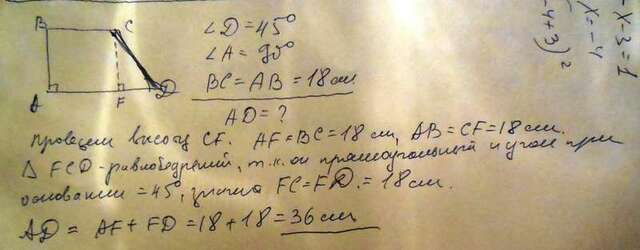 B C
A F D
∠D = 45°
∠A = 90°
BC = AB = 18 см
AD = ?
Проведем высоту CF. AF = BC = 18 см, AB = CF = 18 см.
△ FCD - равнобедрений, т.к. он прямоугольный и угол при
основании = 45°, значит FC = FD. = 18 см.
AD = AF + FD = 18 + 18 = 36 см
-x-3=1
x=-4
-4+3)²